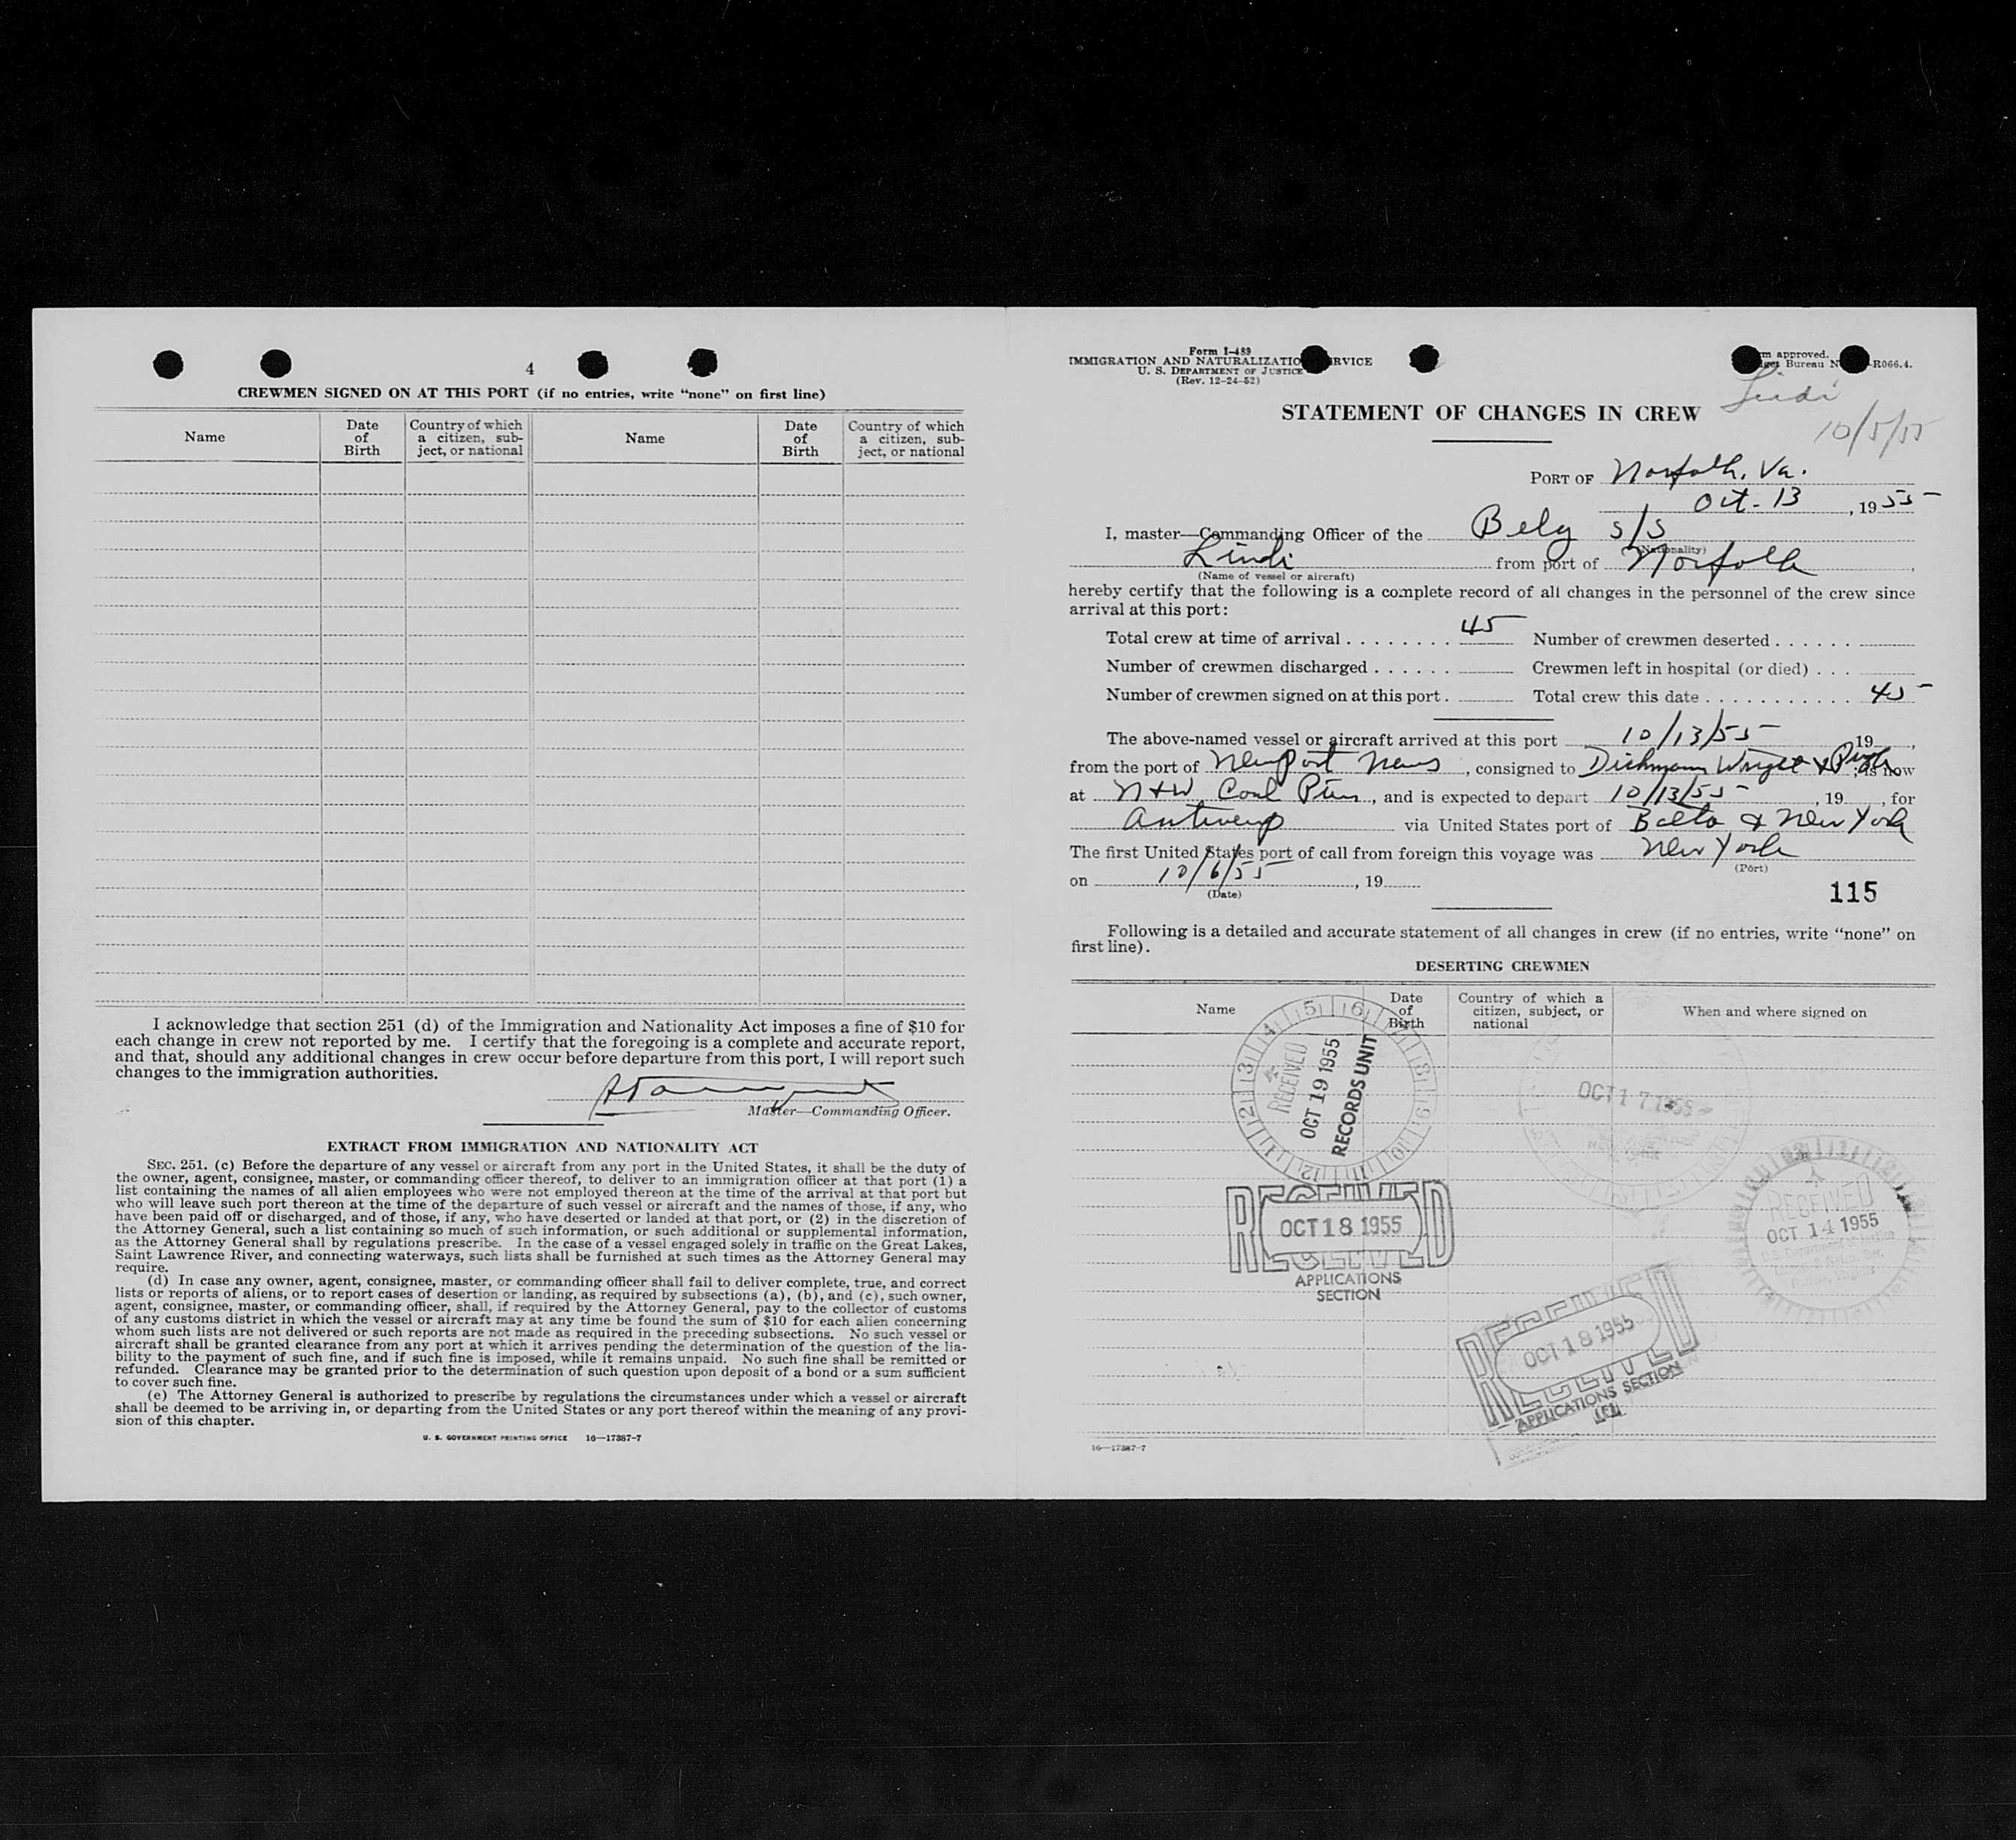 4
CREWMEN SIGNED ON AT THIS PORT (if no entries, write “none” on first line)
Name
Date of Birth
Country of which a citizen, sub-ject, or national
Name
Date of Birth
Country of which a citizen, sub-ject, or national
I acknowledge that section 251 (d) of the Immigration and Nationality Act imposes a fine of $10 for
each change in crew not reported by me. I certify that the foregoing is a complete and accurate report,
and that, should any additional changes in crew occur before departure from this port, I will report such
changes to the immigration authorities.
Master—Commanding Officer.
EXTRACT FROM IMMIGRATION AND NATIONALITY ACT
SEC. 251. (c) Before the departure of any vessel or aircraft from any port in the United States, it shall be the duty of
the owner, agent, consignee, master, or commanding officer thereof, to deliver to an immigration officer at that port (1) a
list containing the names of all alien employees who were not employed thereon at the time of the arrival at that port but
who will leave such port thereon at the time of the departure of such vessel or aircraft and the names of those, if any, who
have been paid off or discharged, and of those, if any, who have deserted or landed at that port, or (2) in the discretion of
the Attorney General, such a list containing so much of such information, or such additional or supplemental information,
as the Attorney General shall by regulations prescribe. In the case of a vessel engaged solely in traffic on the Great Lakes,
Saint Lawrence River, and connecting waterways, such lists shall be furnished at such times as the Attorney General may
require.
(d) In case any owner, agent, consignee, master, or commanding officer shall fail to deliver complete, true, and correct
lists or reports of aliens, or to report cases of desertion or landing, as required by subsections (a), (b), and (c), such owner,
agent, consignee, master, or commanding officer, shall, if required by the Attorney General, pay to the collector of customs
of any customs district in which the vessel or aircraft may at any time be found the sum of $10 for each alien concerning
whom such lists are not delivered or such reports are not made as required in the preceding subsections. No such vessel or
aircraft shall be granted clearance from any port at which it arrives pending the determination of the question of the lia-
bility to the payment of such fine, and if such fine is imposed, while it remains unpaid. No such fine shall be remitted or
refunded. Clearance may be granted prior to the determination of such question upon deposit of a bond or a sum sufficient
to cover such fine.
(e) The Attorney General is authorized to prescribe by regulations the circumstances under which a vessel or aircraft
shall be deemed to be arriving in, or departing from the United States or any port thereof within the meaning of any provi-
sion of this chapter.
U. S. GOVERNMENT PRINTING OFFICE 16—17387-7
Form I-489
IMMIGRATION AND NATURALIZATIO RVICE
U. S. DEPARTMENT OF JUSTICE
(Rev. 12-24-52)
m approved.
get Bureau N -R066.4.
Lindi
10/5/55
STATEMENT OF CHANGES IN CREW
PORT OF Norfolk, Va.
Oct. 13, 1955
I, master—Commanding Officer of the Belg s/s
(Nationality)
Lindi from port of Norfolk,
(Name of vessel or aircraft)
hereby certify that the following is a complete record of all changes in the personnel of the crew since
arrival at this port:
Total crew at time of arrival . . . . . . . . 45 Number of crewmen deserted . . . . . .
Number of crewmen discharged . . . . . . Crewmen left in hospital (or died) . . .
Number of crewmen signed on at this port . Total crew this date . . . . . . . . . . . 45
The above-named vessel or aircraft arrived at this port 10/13/55 19 ,
from the port of Newport News, consigned to Dichmann Wright & Pugh, is now
at N+W Coal Pier, and is expected to depart 10/13/55, 19 , for
Antwerp via United States port of Balto & New York
The first United States port of call from foreign this voyage was New York
(Port)
on 10/6/55, 19
(Date)
115
Following is a detailed and accurate statement of all changes in crew (if no entries, write “none” on
first line).
DESERTING CREWMEN
Name
Date of Birth
Country of which a citizen, subject, or national
When and where signed on
RECEIVED
OCT 19 1955
RECORDS UNIT
OCT 17 1955
RECEIVED
OCT 14 1955
RECEIVED
OCT 18 1955
APPLICATIONS
SECTION
RECEIVED
OCT 18 1955
APPLICATIONS SECTION
16—17387-7